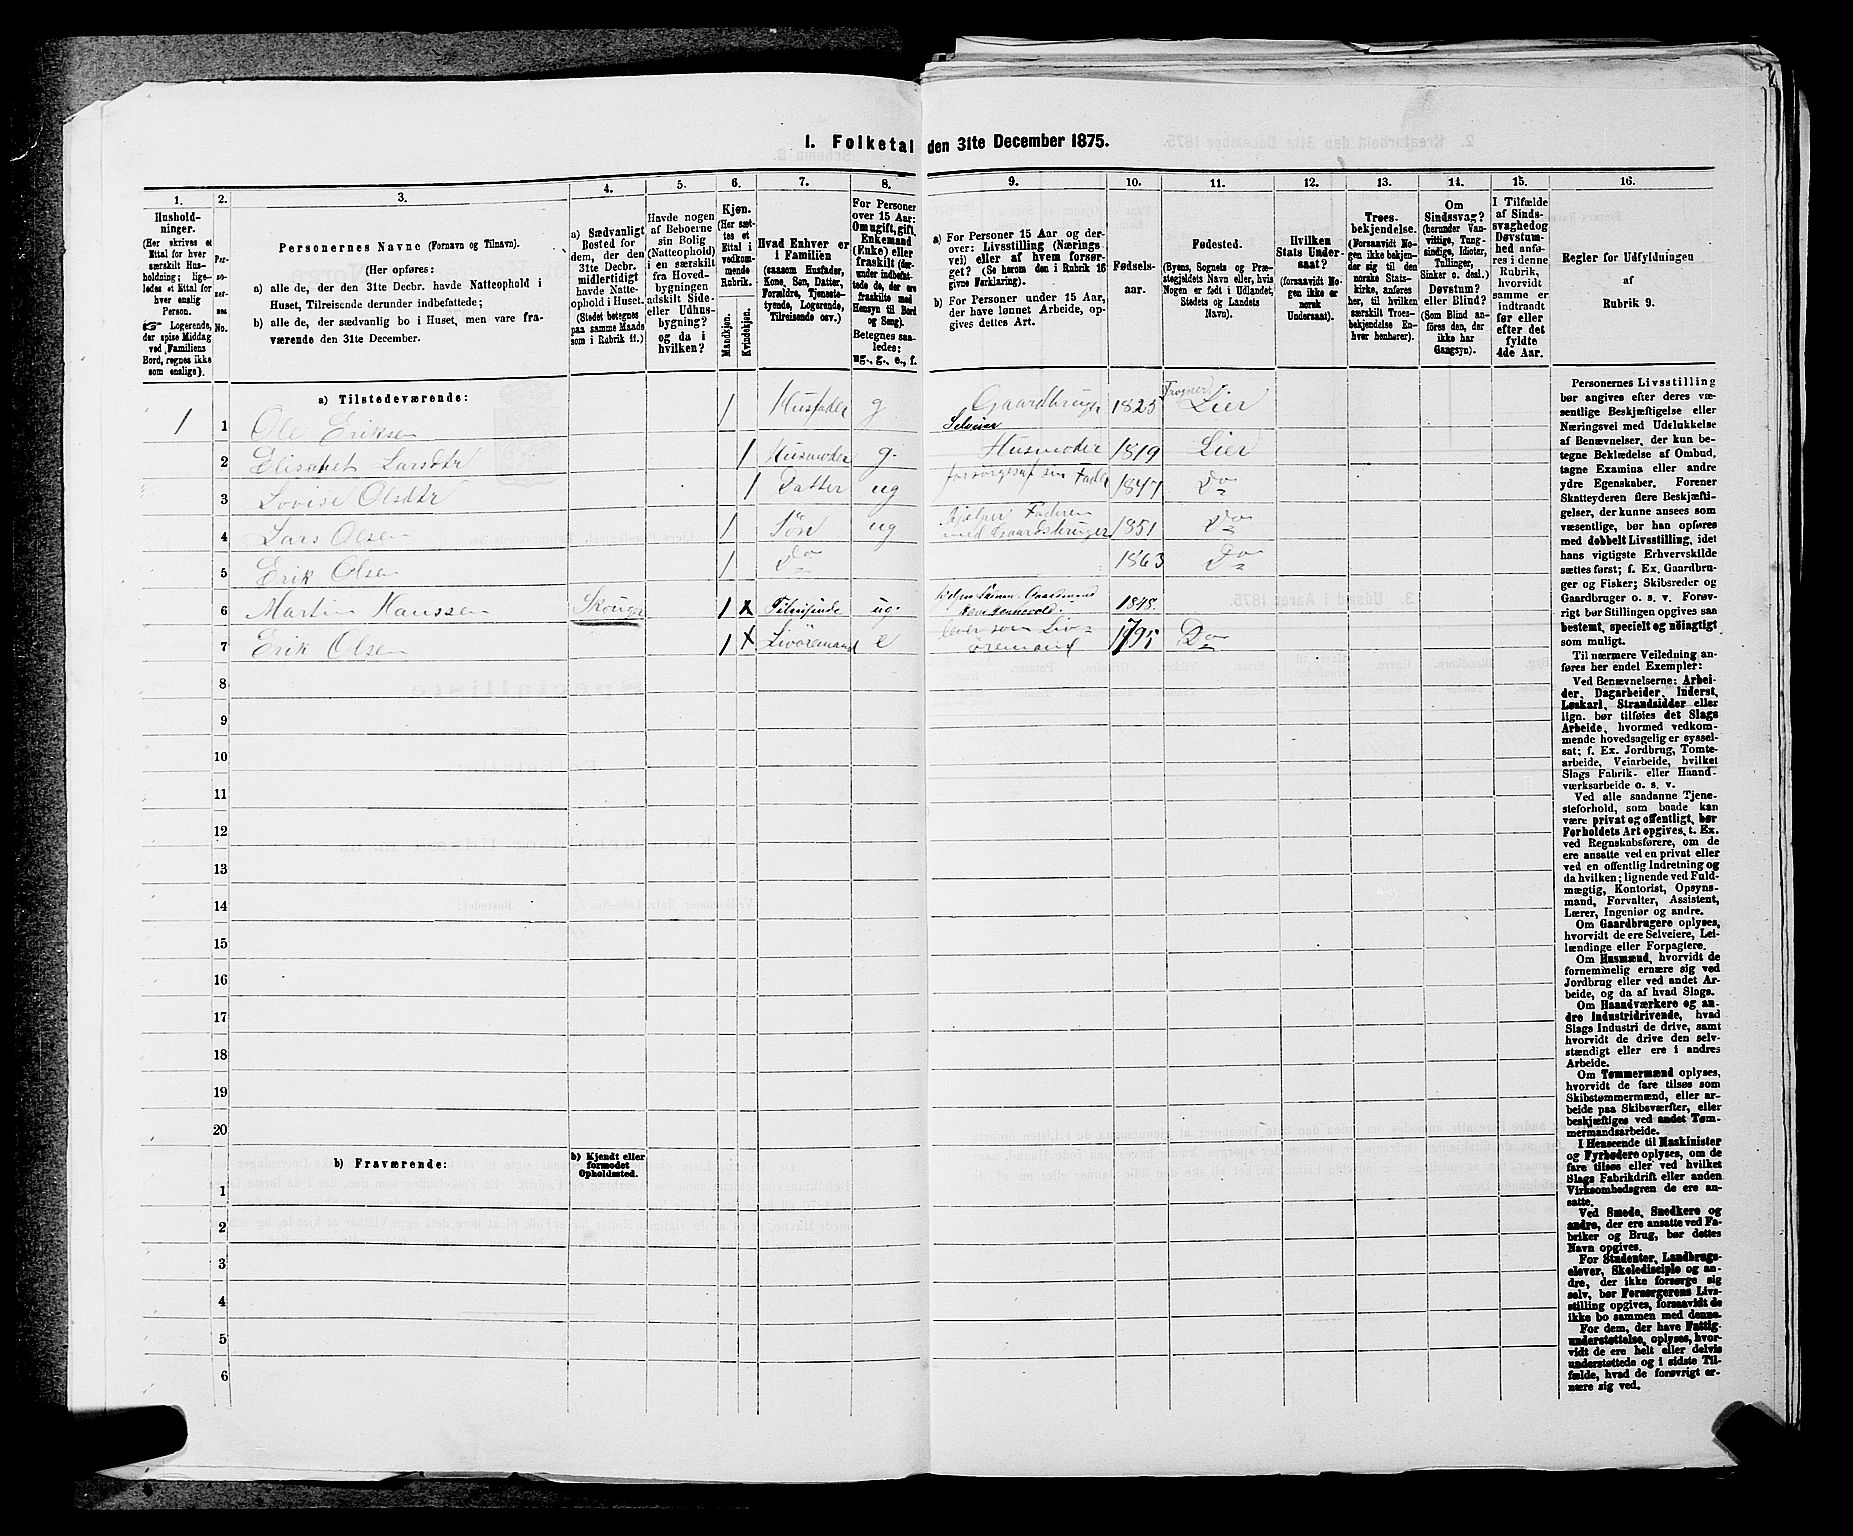 I. Folketal den 31te December 1875.
1. 2. 3. 4. 5. 6. 7. 8. 9. 10. 11. 12. 13. 14. 15. 16.
Hushold-
ninger.
(Her skrives et
Ettal for hver
særskilt Hus-
holdning; lige-
ledes et Ettal for
hver enslig
Person.
☞ Logerende,
der spise Middag
ved Familiens
Bord, regnes ikke
som enslige).
Per-
so-
ner-
nes
No.
Personernes Navne (Fornavn og Tilnavn).
(Her opføres:
a) alle de, der den 31te Decbr. havde Natteophold i
Huset, Tilreisende derunder indbefattede;
b) alle de, der sædvanlig bo i Huset, men vare fra-
værende den 31te December.
a) Sædvanligt
Bosted for
dem, der den
31te Decbr.
midlertidigt
havde Natte-
ophold i Huset.
(Stedet betegnes
paa samme Maade
som i Rubrik 11.)
Havde nogen
af Beboerne
sin Bolig
(Natteophold)
i en særskilt
fra Hoved-
bygningen
adskilt Side-
eller Udhus-
bygning?
og da i
hvilken?
Kjøn.
(Her sæt-
tes et
Ettal i
vedkom-
mende
Rubrik.
Mandkjøn.
Kvindekjøn.
Hvad Enhver er
i Familien
(saasom Husfader,
Kone, Søn, Datter,
Forældre, Tjeneste-
tyende, Logerende,
Tilreisende osv.)
For Personer
over 15 Aar:
Om ugift, gift,
Enkemand
(Enke) eller
fraskilt (der-
under indbefat-
tede de, der
ere fraskilte med
Hensyn til Bord
og Seng).
Betegnes saa-
ledes:
ug., g., e., f.
a) For Personer 15 Aar og der-
over: Livsstilling (Nærings-
vei) eller af hvem forsør-
get? (Se herom den i Rubrik 16
givne Forklaring).
b) For Personer under 15 Aar,
der have lønnet Arbeide, op-
gives dettes Art.
Fødsels-
aar.
Fødested.
(Byens, Sognets og Præ-
stegjeldets Navn eller, hvis
Nogen er født i Udlandet,
Stedets og Landets
Navn).
Hvilken
Stats Under-
saat?
(forsaavidt No-
gen ikke er
norsk
Undersaat).
Troes-
bekjendelse.
(Forsaavidt No-
gen ikke bekjen-
der sig til den
norske Stats-
kirke, anføres
her, til hvilken
særskilt Troes-
bekjendelse En-
hver henhører).
Om
Sindssvag?
(herunder Van-
vittige, Tung-
sindige, Idioter,
Tullinger,
Sinker o. desl.)
Døvstum?
eller Blind?
(Som Blind an-
føres den, der
ikke har
Gangsyn).
I Tilfælde
af Sinds-
svaghed og
Døvstum-
hed anfø-
res i denne
Rubrik,
hvorvidt
samme er
indtraadt
før eller
efter det
fyldte
4de Aar.
Regler for Udfyldningen
af
Rubrik 9.
a) Tilstedeværende:
1 1 Ole Eriksen 1 Husfader g Gaardbruger Selveier 1825 Frogner Lier
2 Elisabet Larsdtr 1 Husmoder g. Husmoder 1819 Lier
3 Lovise Olsdtr 1 Datter ug forsørges af sin Fader 1847 Do
4 Lars Olsen 1 Søn ug hjelper Faderen med Gaardsbruget 1851 Do
5 Erik Olsen 1 Do 1863 Do
6 Martin Hanssen Skouger 1 x Tilreisende ug. Gaardmand 1848.
7 Erik Olsen 1 x Livøremand e lever som Liv-
øremand 1795 Do
8
9
10
11
12
13
14
15
16
17
18
19
20
b) Fraværende:
b) Kjendt eller
formodet
Opholdssted.
1
2
3
4
5
6
Personernes Livsstilling
bør angives efter deres væ-
sentlige Beskjæftigelse eller
Næringsvei med Udelukkelse
af Benævnelser, der kun be-
tegne Beklædelse af Ombud,
tagne Examina eller andre
ydre Egenskaber. Forener
Skatteyderen flere Beskjæfti-
gelser, der kunne ansees som
væsentlige, bør han opføres
med dobbelt Livsstilling, idet
hans vigtigste Erhvervskilde
sættes først; f. Ex. Gaardbru-
ger og Fisker; Skibsreder og
Gaardbruger o. s. v. Forøv-
rigt bør Stillingen opgives saa
bestemt, specielt og nøiagtigt
som muligt.
Til nærmere Veiledning an-
føres her endel Exempler:
Ved Benævnelserne: Arbei-
der, Dagarbeider, Inderst,
Løskarl, Strandsidder eller
lign. bør tilføies det Slags
Arbeide, hvormed vedkom-
mende hovedsagelig er syssel-
sat; f. Ex. Jordbrug, Tomte-
arbeide, Veiarbeide, hvilket
Slags Fabrik- eller Haand-
værksarbeide o. s. v.
Ved alle saadanne Tjene-
steforhold, som baade kan
være privat og offentligt, bør
Forholdets Art opgives, t. Ex.
ved Regnskabsførere, om de
ere ansatte ved en privat eller
ved en offentlig Indretning og
da hvilken; lignende ved Fuld-
mægtig, Kontorist, Opsyns-
mand, Forvalter, Assistent,
Lærer, Ingeniør og andre.
Om Gaardbrugere oplyses,
hvorvidt de ere Selveiere, Lei-
lændinge eller Forpagtere.
Om Husmænd, hvorvidt de
fornemmelig ernære sig ved
Jordbrug eller ved andet Ar-
beide, og da af hvad Slags.
Om Haandværkere og an-
dre Industridrivende, hvad
Slags Industri de drive, samt
hvorvidt de drive den selv-
stændigt eller ere i andres
Arbeide.
Om Tømmermænd oplyses,
hvorvidt de fare tilsøs som
Skibstømmermænd, eller ar-
beide paa Skibsværfter, eller
beskjæftiges ved andet Tøm-
mermandsarbeide.
I Henseende til Maskinister
og Fyrbødere oplyses, om de
fare tilsøs eller ved hvilket
Slags Fabrikdrift eller anden
Virksomhedsgren de ere an-
satte.
Ved Smede, Snedkere og
andre, der ere ansatte ved Fa-
briker og Brug, bør dettes
Navn opgives.
For Studenter, Landbrugs-
elever, Skoledisciple og an-
dre, der ikke forsørge sig
selv, bør Forsørgerens Livs-
stilling opgives, forsaavidt de
ikke bo sammen med denne.
For dem, der have Fattig-
understøttelse, oplyses, hvor-
vidt de ere helt eller delvis
understøttede og i sidste Til-
fælde, hvad de forøvrigt er-
nære sig ved.